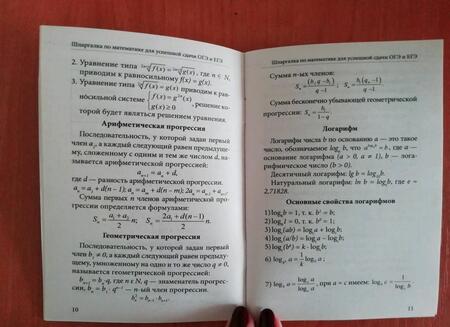 Шпаргалка по математике для успешной сдачи ОГЭ и ЕГЭ
2. Уравнение типа ²ⁿ⁺¹√f(x) = ²ⁿ⁺¹√g(x), где n ∈ N,
приводим к равносильному f(x) = g(x).
3. Уравнение типа ²ⁿ√f(x) = g(x) приводим к рав-
носильной системе { f(x) = g²ⁿ(x) g(x) ≥ 0 , решение ко-
торой будет являться решением уравнения.
Арифметическая прогрессия
Последовательность, у которой задан первый
член a₁, а каждый следующий равен предыдуще-
му, сложенному с одним и тем же числом d, на-
зывается арифметической прогрессией:
aₙ₊₁ = aₙ + d,
где d — разность арифметической прогрессии.
aₙ = a₁ + d(n − 1); aₙ = aₘ + d(n − m); 2aₙ = aₙ₋₁ + aₙ₊₁.
Сумма первых n членов арифметической про-
грессии определяется формулами:
Sₙ = (a₁ + aₙ)/2 n; Sₙ = (2a₁ + d(n − 1))/2 n.
Геометрическая прогрессия
Последовательность, у которой задан первый
член b₁ ≠ 0, а каждый следующий равен предыду-
щему, умноженному на одно и то же число q ≠ 0,
называется геометрической прогрессией:
bₙ₊₁ = bₙ q, где n ∈ N, q — знаменатель прогрес-
сии, bₙ = b₁ · qⁿ⁻¹ — n-ый член прогрессии.
bₙ² = bₙ₋₁ · bₙ₊₁.
10
Шпаргалка по математике для успешной сдачи ОГЭ и ЕГЭ
Сумма n-ых членов:
Sₙ = (bₙq − b₁)/(q − 1); Sₙ = b₁(qⁿ − 1)/(q − 1)
Сумма бесконечно убывающей геометрической
прогрессии: Sₙ = b₁/(1 − q)
Логарифм
Логарифм числа b по основанию a — это такое
число, обозначаемое logₐ b, что a^(logₐ b) = b, где a —
основание логарифма (a > 0, a ≠ 1), b — лога-
рифмическое число (b > 0).
Десятичный логарифм: lg b = log₁₀ b.
Натуральный логарифм: ln b = logₑ b, где e =
2,71828.
Основные свойства логарифмов
1) logₐ b = 1, т. к. b¹ = b;
2) logₐ 1 = 0, т. к. b⁰ = 1;
3) logₐ(ab) = logₐ a + logₐ b;
4) logₐ(a/b) = logₐ a − logₐ b;
5) logₐ(bᵏ) = k · logₐ b;
7) log_b a = log_c a / log_c b, при a = c имеем: log_b c = 1 / log_c b
11